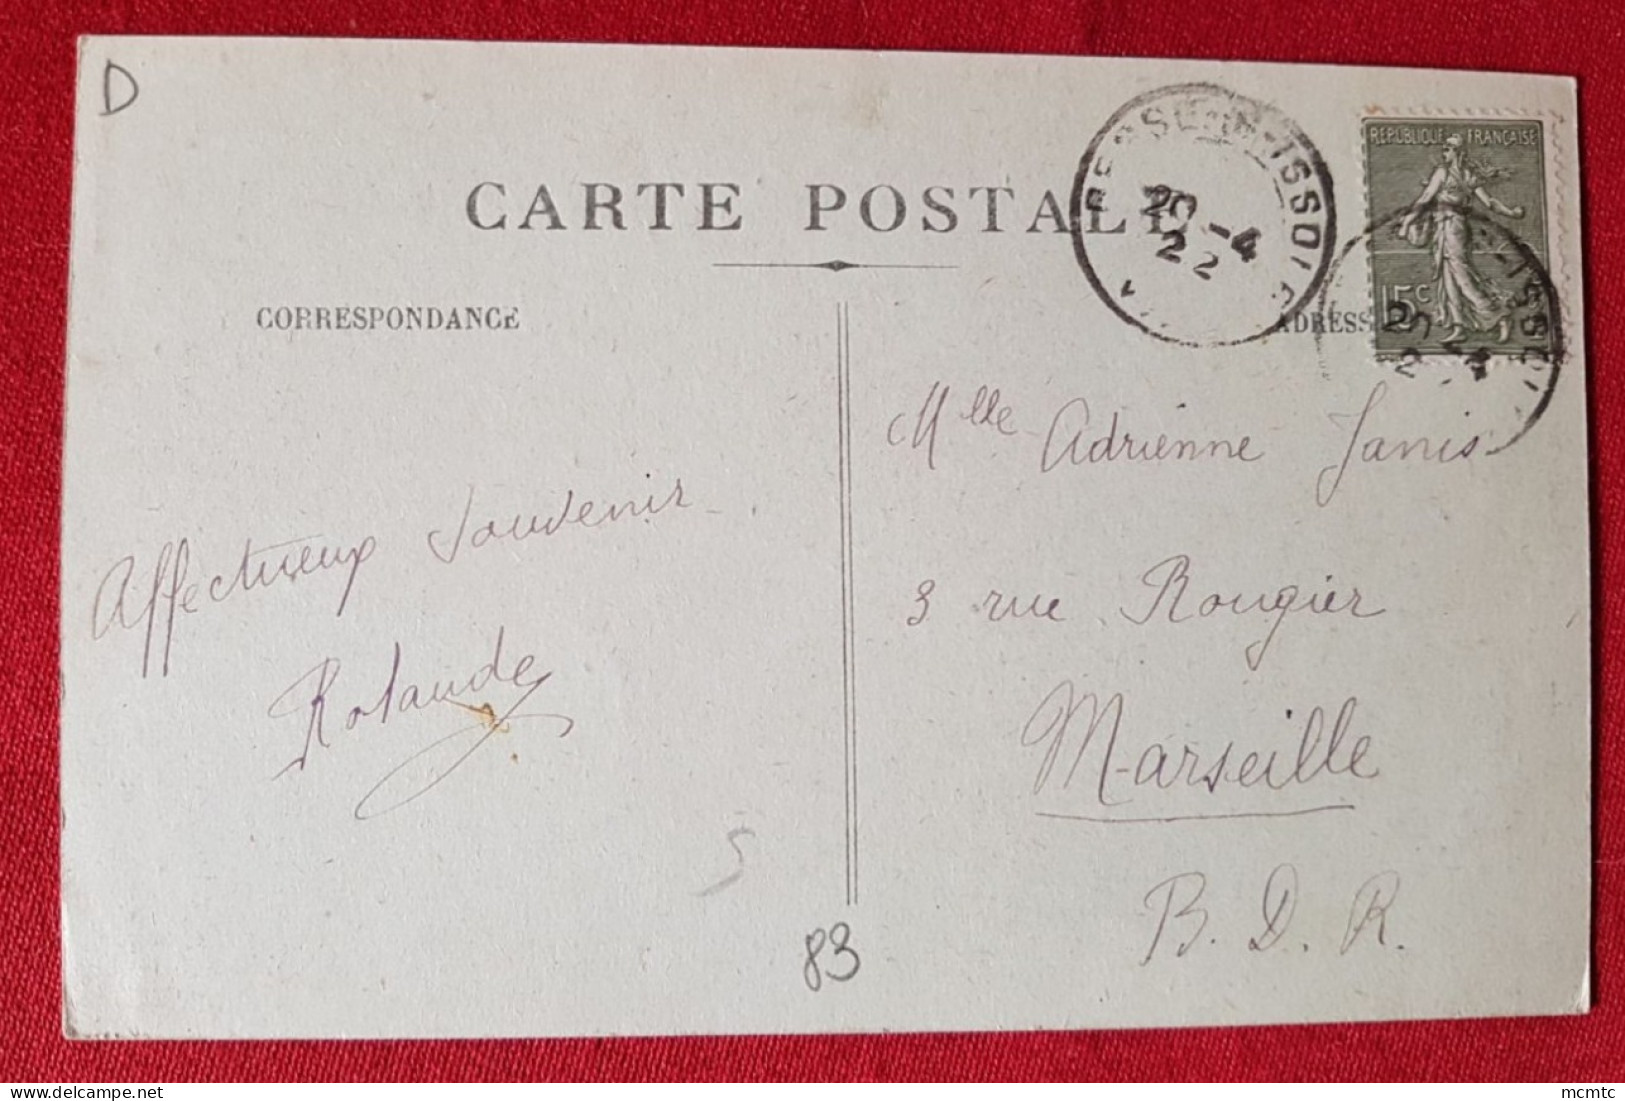 D
CARTE POSTALE
BESSE-EN-ISSOIRE
20 -4
22
REPUBLIQUE FRANÇAISE
15c
20 -4
2
CORRESPONDANCE
ADRESSE
Affectueux souvenir
Rolande
Mlle Adrienne Janis
3 rue Rougier
Marseille
B. D. R.
5
83
mcmtc